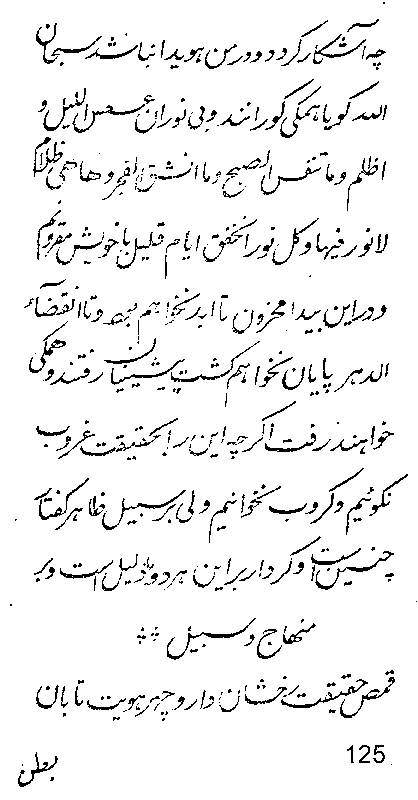 چه آشکار کردد و در من هویدا نباشد سبحان
الله کویا همکی کورانند و بی نوران عسعس اللیل و
اظلم و ما تنفس الصبح و ما انشق الفجر و ها هی ظلام
لا نور فیها و کل نور انخفق ایام قلیل با خویش مقرونم
و در این بیدا محزون تا ابد نخواهم بود و تا انقضآء
الدهر پایان نخواهم کشت پیشینیان رفتند و همکی
خواهند رفت اکر چه این را بحقیقت غروب
نکوئیم و کروب نخوانیم ولی بر سبیل ظاهر کفتار
چنین است و کردار بر این هر دو دلیل است و بر
منهاج و سبیل **
قمص حقیقت رخشان دار و چهر هویت تابان
125
بطن